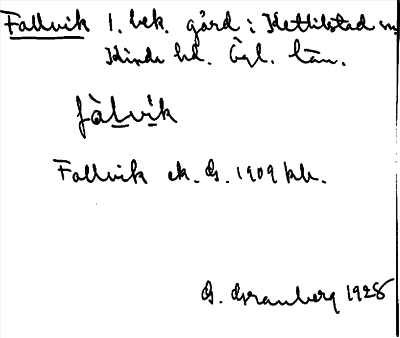 Fallvik 1. bek. gård i Kettilstad sn
Kinda hd. Ögl. län.
fàlvik
Fallvik ek. G. 1909 kb.
G. Granberg 1928